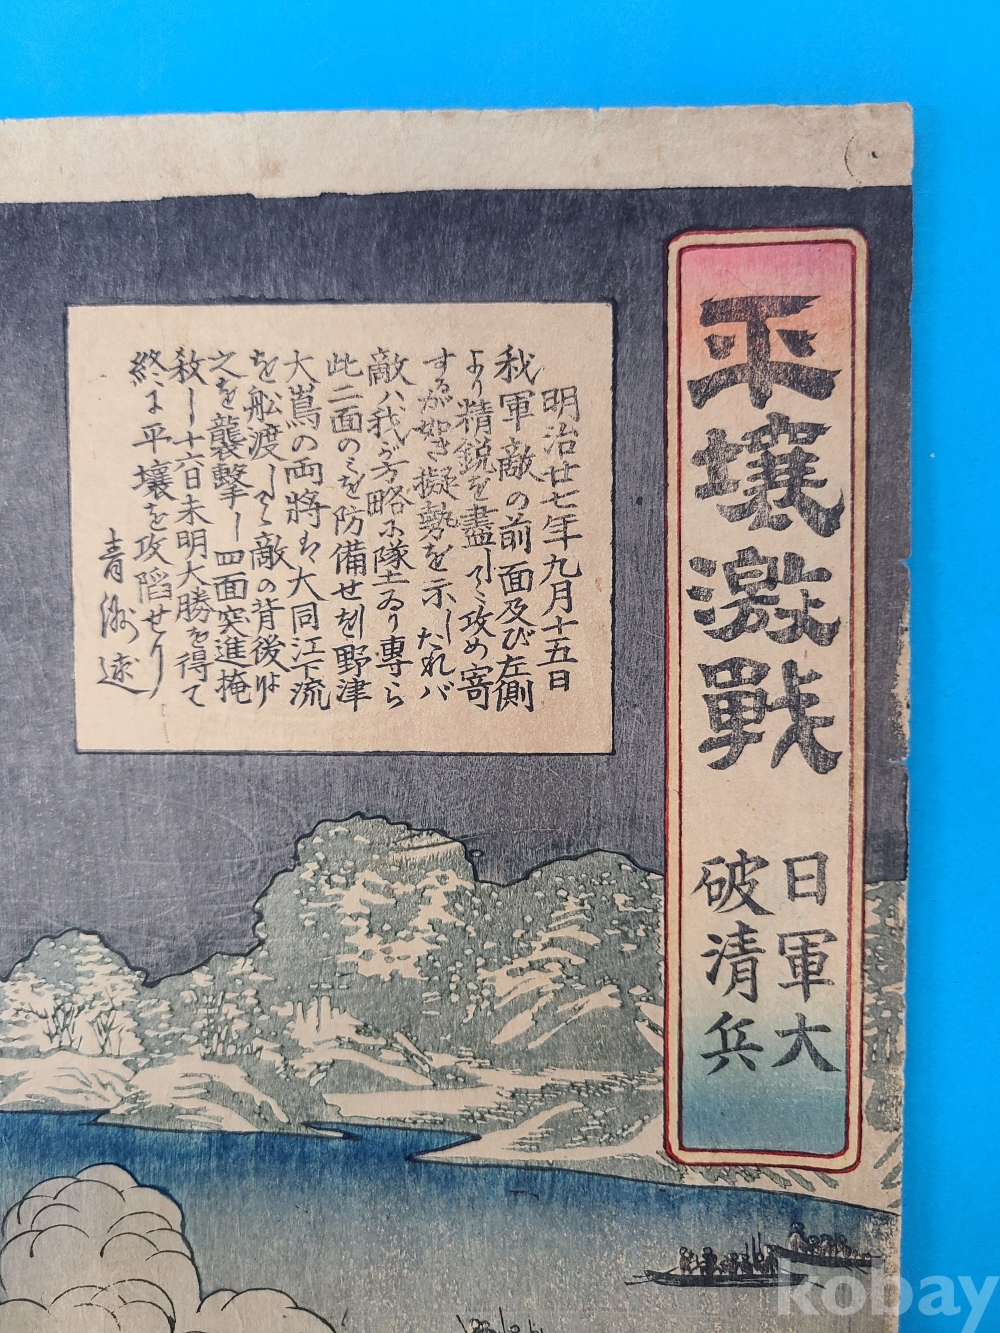 平壤激戰
日軍大
破清兵
明治廿七年九月十五日
我軍敵の前面及び左側
より精鋭を盡して攻め寄
するが如き擬勢を示したれバ
敵ハ我が方略に墜ゐり專ら
此二面のミを防備せを野津
大嶌の両將ハ大同江下流
を舩渡して敵の背後より
之を襲撃し四面突進掩
殺し十六日未明大勝を得て
終に平壤を攻陷せり
kobay